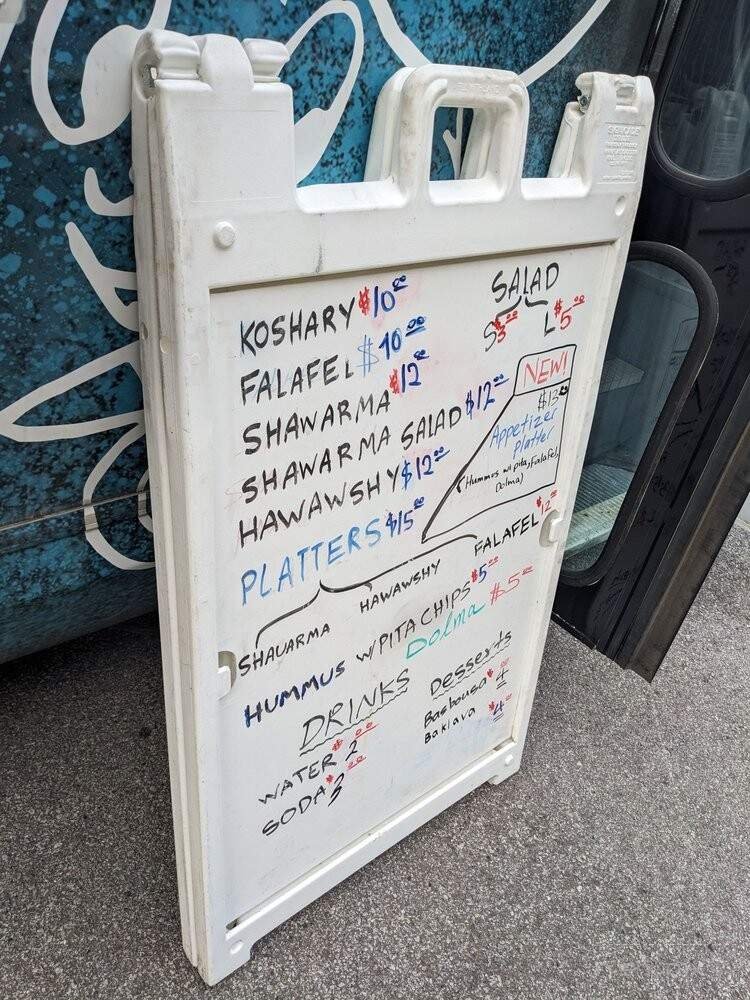 KOSHARY $10.00
FALAFEL $10.00
SHAWARMA $12.00
SHAWARMA SALAD $12.00
HAWAWSHY $12.00
PLATTERS $15.00
SHAUARMA
HAWAWSHY
FALAFEL $12.00
SALAD
S $3.00 L $5.00
NEW!
$13.00
Appetizer
Platter
(Hummus w/pita, Falafel,
Dolma)
HUMMUS W/PITA CHIPS $5.00
Dolma $5.00
DRINKS
WATER $2.00
SODA $3.00
Desserts
Basbousa $4.00
Baklava $4.00